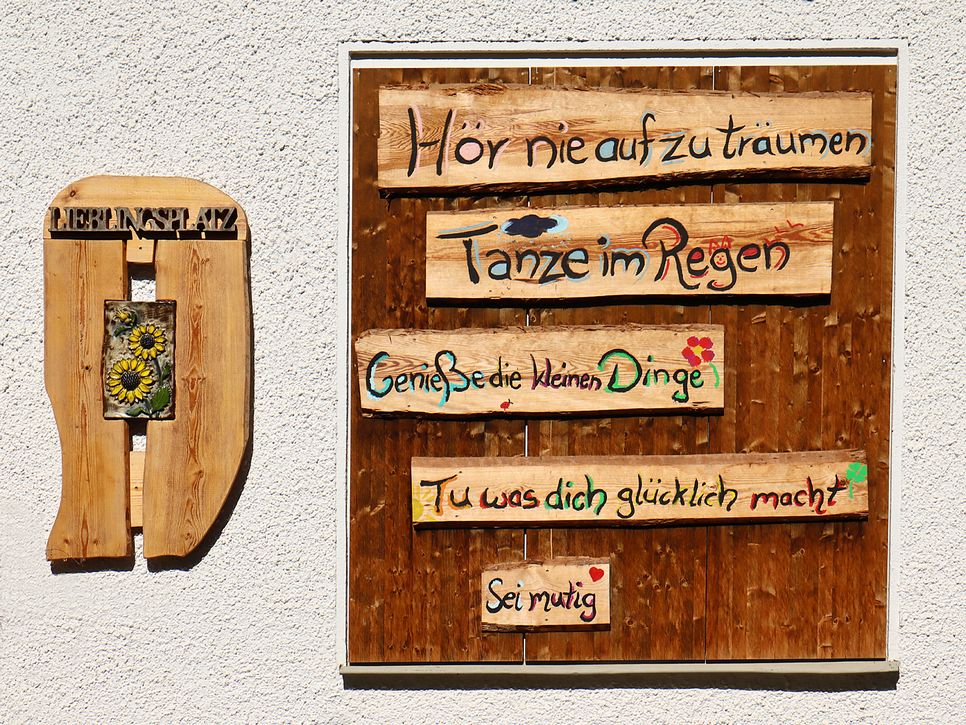 LIEBLINGSPLATZ
Hör nie auf zu träumen
Tanze im Regen
Genieße die kleinen Dinge
Tu was dich glücklich macht
Sei mutig